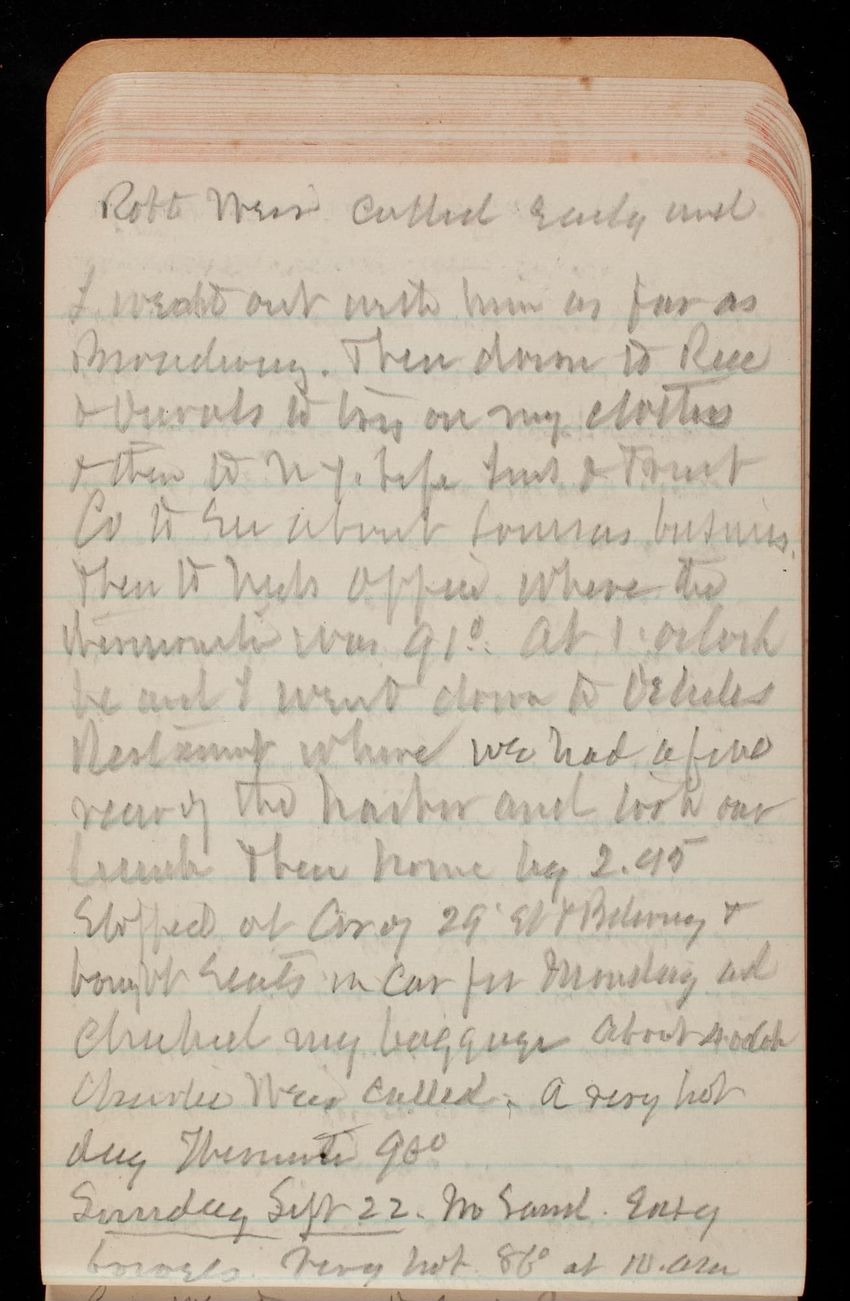 Robt Weir called Early and
I went out with him as far as
Broadway. Then down to
& to try on my clothes
& then to N.Y. Life Ins & Trust
Co to See about business.
Then to Neds office where the
thermomete was 91°. At 1 oclock
he and I went down to
Restaurnt where we had a fine
view of the harbor and took our
lunch Then home by 2.45
Stopped at Cor of 29 St & Bdway &
bought Seats in Car for Monday ad
Checked my baggage About 4 oclk
Charlie Weir called. A very hot
day Thermomete 90°
Sunday Sept 22. No Sand. Easy
bowels very hot 86° at 10. am